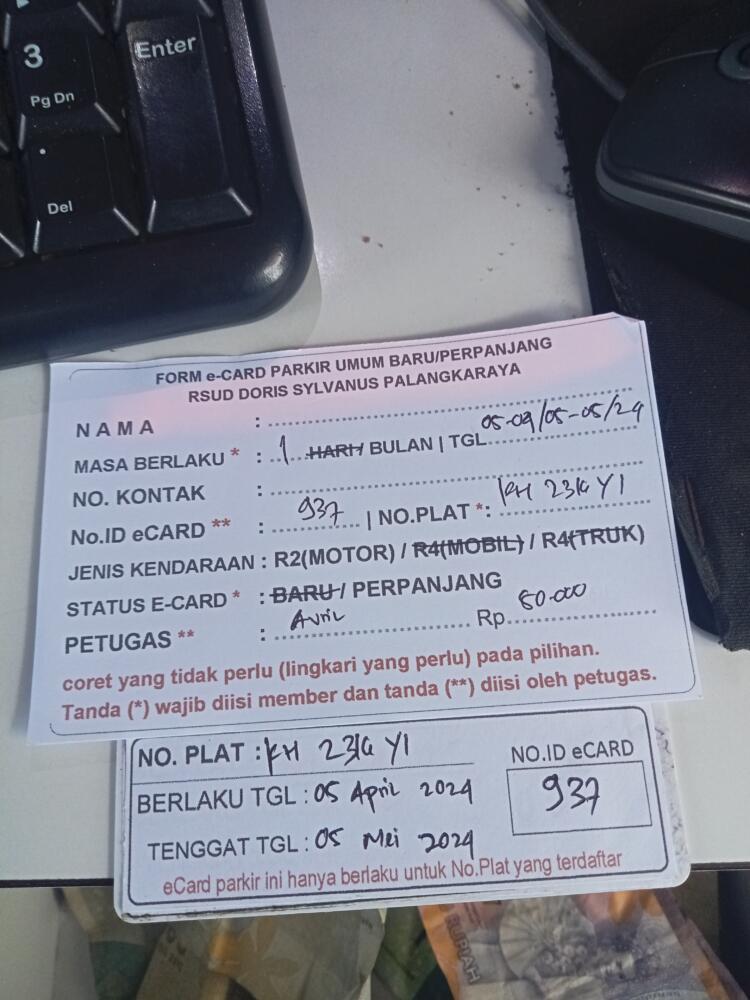 3
Pg Dn
Enter
.
Del
FORM e-CARD PARKIR UMUM BARU/PERPANJANG
RSUD DORIS SYLVANUS PALANGKARAYA
NAMA :
MASA BERLAKU * : 1 HARI/ BULAN | TGL 05-04/05-05/24
NO. KONTAK :
No.ID eCARD ** : 937 | NO.PLAT *: KH 2316 YI
JENIS KENDARAAN : R2(MOTOR) / R4(MOBIL) / R4(TRUK)
STATUS E-CARD * : BARU / PERPANJANG
PETUGAS ** : Avril Rp 50.000
coret yang tidak perlu (lingkari yang perlu) pada pilihan.
Tanda (*) wajib diisi member dan tanda (**) diisi oleh petugas.
NO. PLAT : KH 2316 YI
NO.ID eCARD
937
BERLAKU TGL : 05 April 2024
TENGGAT TGL : 05 Mei 2024
eCard parkir ini hanya berlaku untuk No.Plat yang terdaftar
RUPIAH